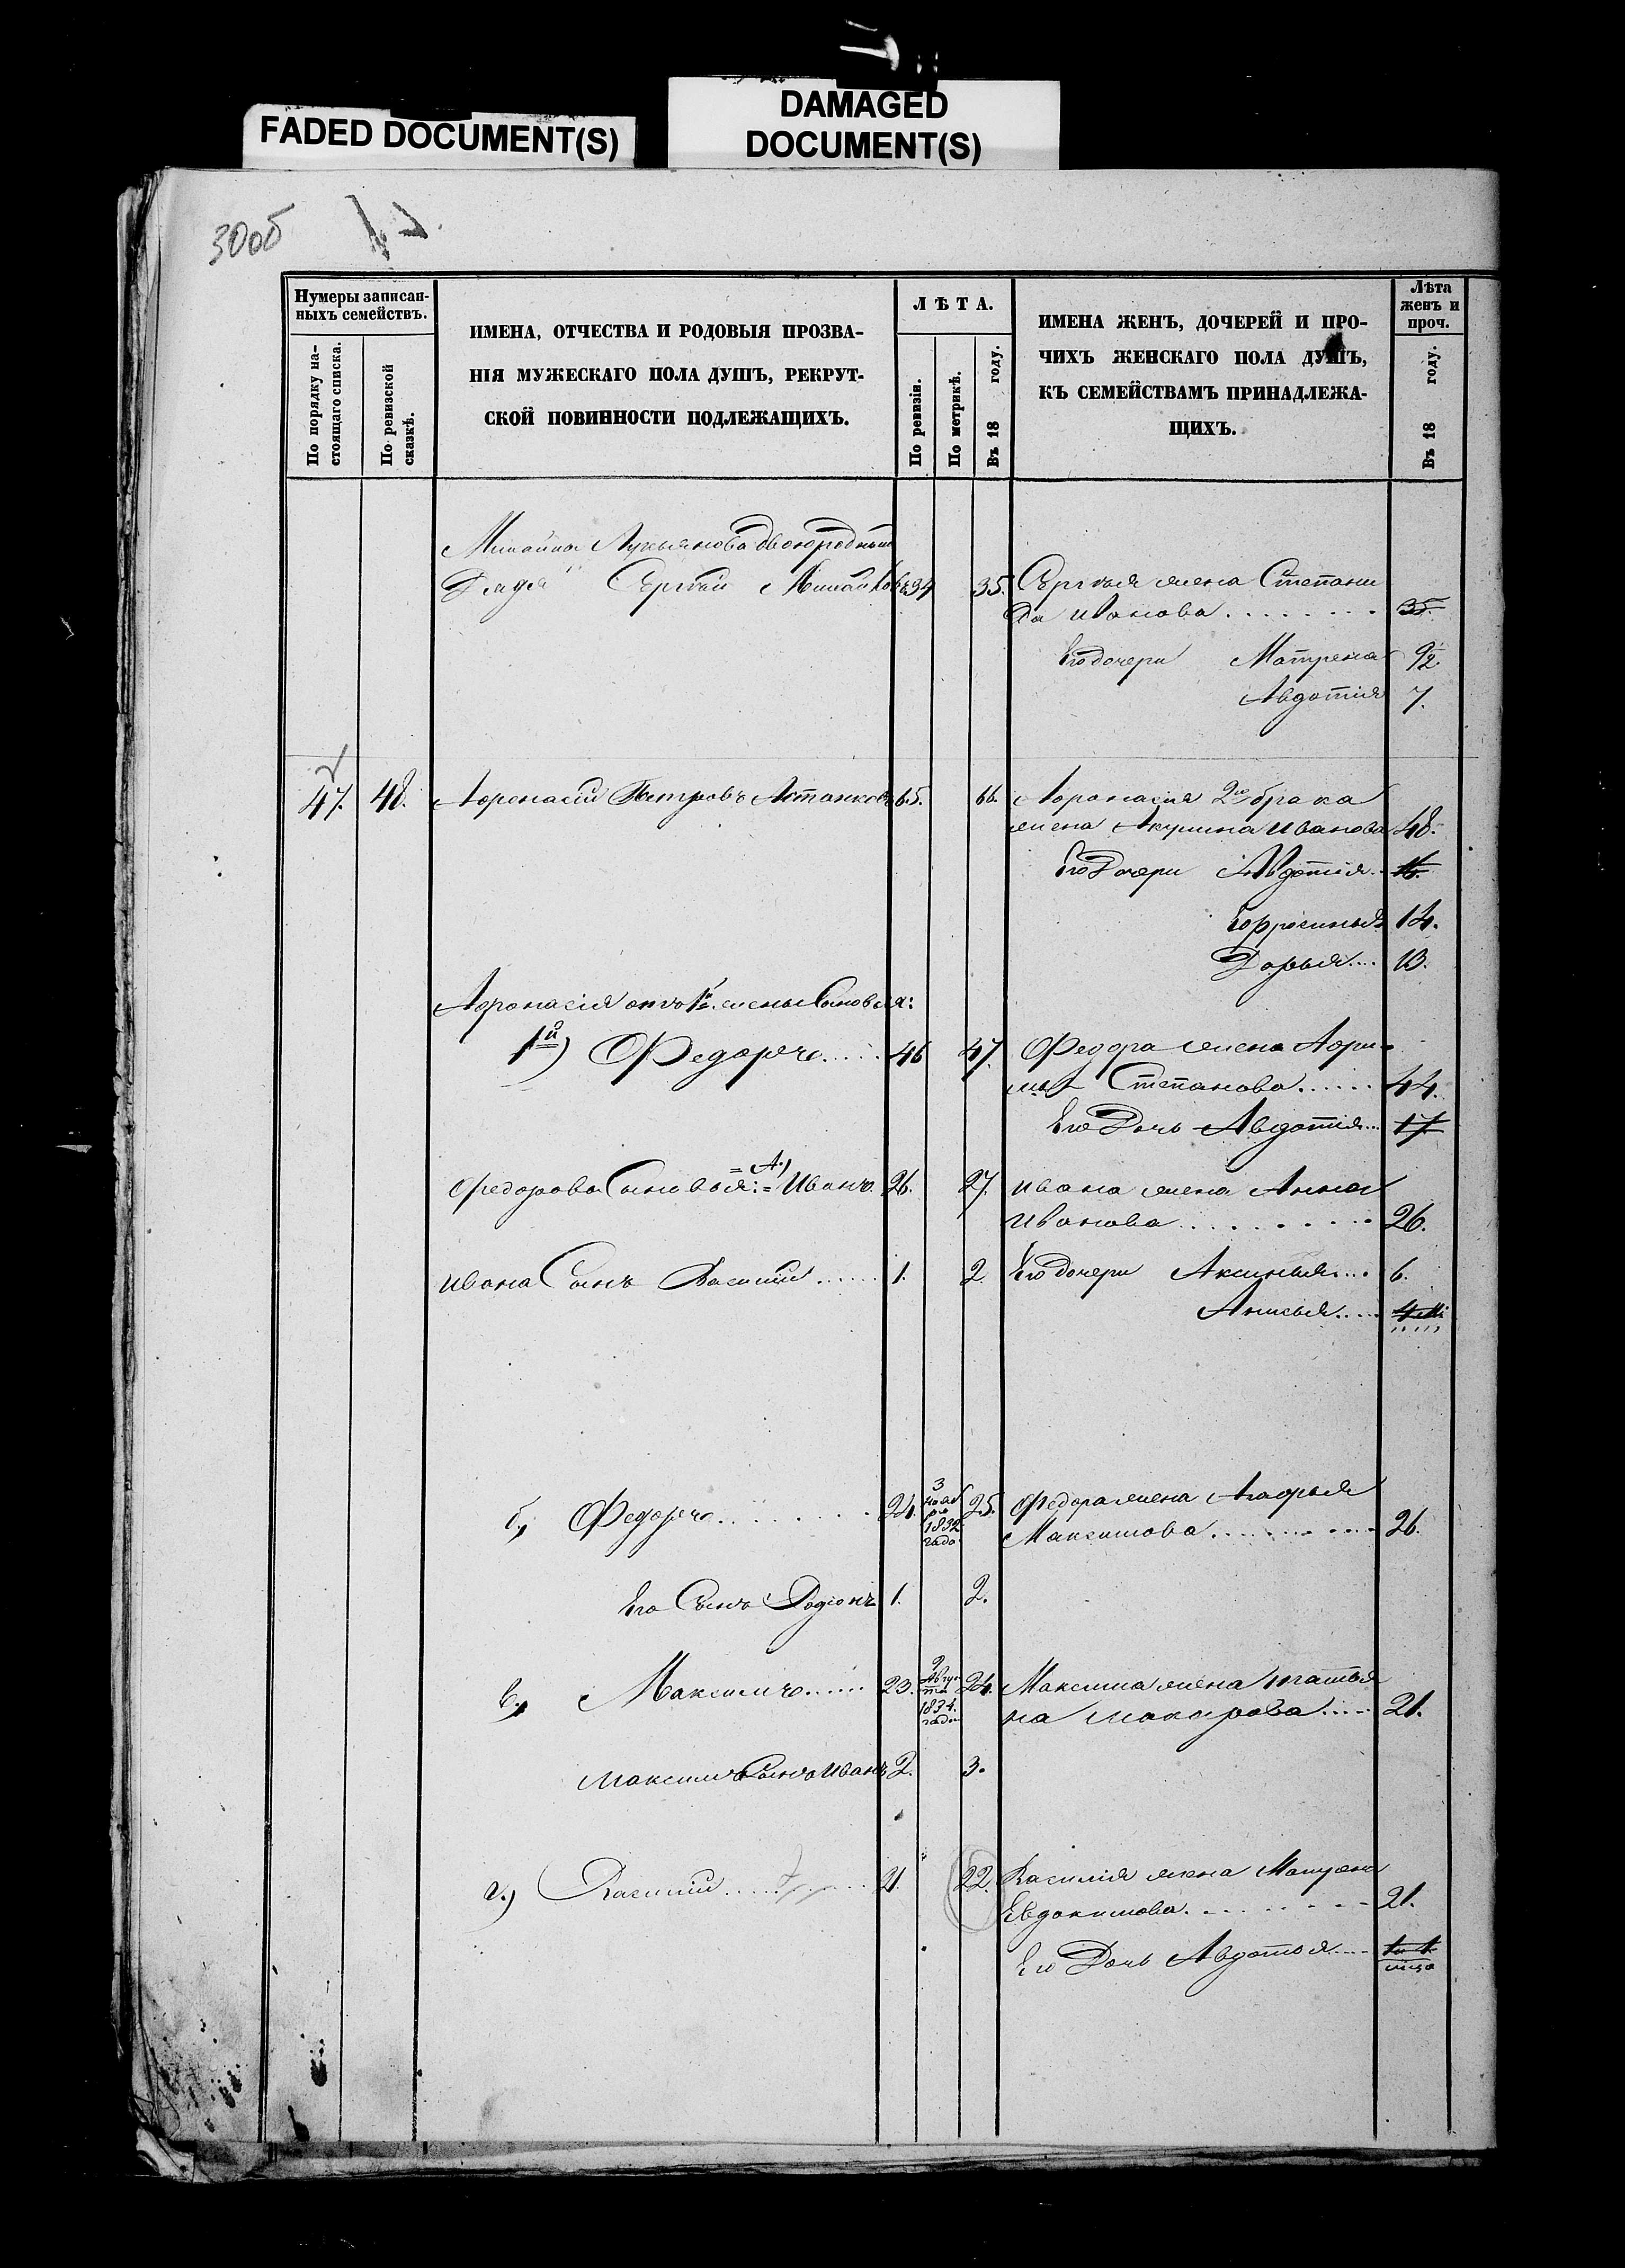 FADED DOCUMENT(S)
DAMAGED
DOCUMENT(S)
30об
Нумеры записан-
ныхъ семействъ.
По порядку на-
стоящаго списка.
По ревизской
сказкѣ.
ИМЕНА, ОТЧЕСТВА И РОДОВЫЯ ПРОЗВА-
НІЯ МУЖЕСКАГО ПОЛА ДУШЪ, РЕКРУТ-
СКОЙ ПОВИННОСТИ ПОДЛЕЖАЩИХЪ.
ЛѢТА.
По ревизіи.
По метрикѣ.
Въ 18 году.
ИМЕНА ЖЕНЪ, ДОЧЕРЕЙ И ПРО-
ЧИХЪ ЖЕНСКАГО ПОЛА ДУШЪ,
КЪ СЕМЕЙСТВАМЪ ПРИНАДЛЕЖА-
ЩИХЪ.
Лѣта
женъ и
проч.
Въ 18 году.
Михайла Лукьянова двоюродный
Дядя Сергѣй Михайловъ 34 35. Сергѣя жена Степани
да Иванова 35.
Его дочери Матрена 9/2.
Авдотія 7.
47. 48. Афонасій Петровъ Астанковъ 65. 66. Афонасія 2го брака
жена Акулина Иванова 48.
Его Дочери Авдотія 16.
Ефросинья 14.
Дарья 13.
Афонасія отъ 1й жены Сыновья:
1й) Федоръ 46 47. Федора жена Афи-
мья Степанова 44.
Его Дочь Авдотія 17.
Федорова Сыновья: = А) Иванъ 26. 27. Ивана жена Анна
Иванова 26.
Ивана Сынъ Василій 1. 2. Его дочери Аксинья 6.
Анисья
б, Федоръ 24. 3 ноября 1832 года 25. Федора жена Агафья
Максимова 26.
Его Сынъ Родіонъ 1. 2.
в, Максимъ 23. 9 Августа 1834. года 24. Максима жена Татья
на Макарова 21.
Максима Сынъ Иванъ 2. 3.
г.) Василій 21. 22. Василія жена Матрена
Евдокимова 21.
Его Дочь Авдотья